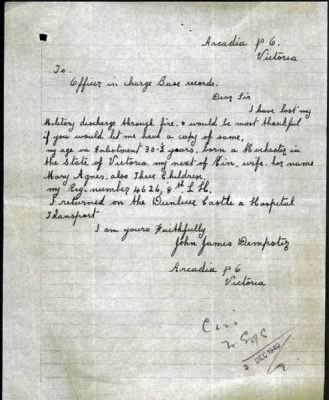 Arcadia P 6.
Victoria
To.
Officer in charge Base records.
Dear Sir
I have lost my
Military discharge through fire, & would be most thankful
if you would let me have a copy of same,
my age on Enlistment 30 years, born a Rochester in
the state of Victoria, my next of Kin, wife, her name
Mary Agnes, also Three Children,
my Reg. number 4626, 8th L H.
I returned on the Dunluce Castle a Hospital
Transport
I am yours Faithfully
John James Dempster
Arcadia P 6
Victoria
2 DEC 1940